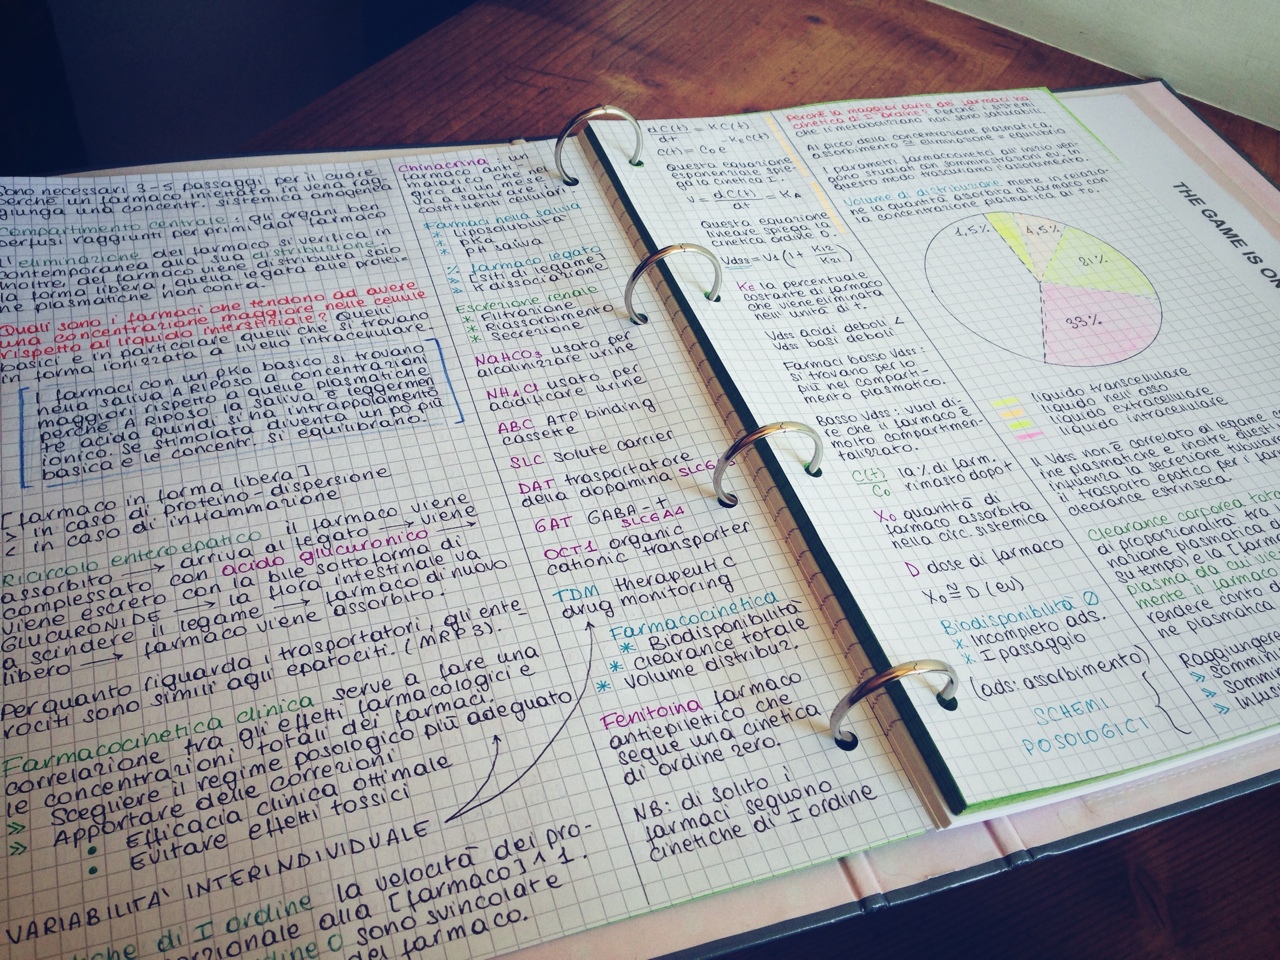 Sono necessari 3-5 passaggi per il cuore
perché un farmaco iniettato in vena rag-
giunga una concentr. sistemica omogenea
Compartimento centrale: gli organi ben
perfusi raggiunti per primi dal farmaco
L'eliminazione del farmaco si verifica in
contemporanea alla sua distribuzione.
la forma libera, quella legata alle protei-
ne plasmatiche non conta.
Quali sono i farmaci che tendono ad avere
una concentrazione maggiore nelle cellule
rispetto al liquido interstiziale? Quelli
basici e in particolare quelli che si trovano
in forma ionizzata a livello intracellulare.
I farmaci con un pKa basico si trovano
nella saliva A RIPOSO a concentrazioni
maggiori rispetto a quelle plasmatiche
perché A RIPOSO la saliva è leggermen
te acida quindi si ha intrappolamento
ionico. Se stimolata diventa un po' più
basica e le concentr. si equilibrano.
[farmaco in forma libera]
> in caso di proteino-dispersione
< in caso di infiammazione
Ricircolo enteroepatico il farmaco viene
assorbito → arriva al fegato → viene
complessato con acido glucuronico →
viene escreto con la bile sottoforma di
GLUCURONIDE → la flora intestinale va
a scindere il legame → farmaco di nuovo
libero → farmaco viene assorbito.
Per quanto riguarda i trasportatori, gli ente-
rociti sono simili agli epatociti. (MRP3).
Farmacocinetica clinica serve a fare una
correlazione tra gli effetti farmacologici e
le concentrazioni totali dei farmaci.
» Scegliere il regime posologico più adeguato
» Apportare delle correzioni
• Efficacia clinica ottimale
• Evitare effetti tossici
VARIABILITA' INTERINDIVIDUALE
di I ordine la velocità dei pro-
alla [farmaco] ^ 1.
0 sono svincolate
del farmaco.
Chinacrina: un
farmaco anti-
costituenti cellulari
Farmaci nella saliva
* liposolubilità
* pKa
* pH saliva
% farmaco legato
» [siti di legame]
» K dissociazione
Escrezione renale
* Filtrazione
* Riassorbimento
* Secrezione
NaHCO3 usato per
alcalinizzare urine
NH4Cl usato per
acidificare urine
ABC ATP binding
cassette
SLC solute carrier
DAT trasportatore
della dopamina SLC6
GAT GABA-T
SLC6A4
OCT1 organic
cationic transporter
TDM therapeutic
drug monitoring
Farmacocinetica
* Biodisponibilità
* Clearance totale
* Volume distribuz.
Fenitoina farmaco
antiepilettico che
segue una cinetica
di ordine zero.
NB: di solito i
farmaci seguono
cinetiche di I ordine
dC(t)/dt = KC(t)
C(t) = C0 e -KeC(t)
Questa equazione
esponenziale spie-
ga la cinetica I.
V = dC(t)/dt = KA
Questa equazione
lineare spiega la
cinetica ordine 0.
Vdss = V1 (1 + K12/K21)
Ke la percentuale
costante di farmaco
che viene eliminata
nell'unità di t.
Vdss acidi deboli <
Vdss basi deboli
Farmaci basso Vdss:
si trovano per lo
più nel comparti-
mento plasmatico.
Basso Vdss: vuol di-
re che il farmaco è
molto compartimen-
talizzato.
C(t)/C0 la % di farm.
rimasto dopo t
X0 quantità di
farmaco assorbita
nella circ. sistemica
D dose di farmaco
X0 ≅ D (ev)
Biodisponibilità Ø
* Incompleto ads.
* I passaggio
(ads: assorbimento)
SCHEMI
POSOLOGICI
Perché la maggior parte dei farmaci ha
cinetica di I ordine? Perché i sistemi
che li metabolizzano non sono saturabili.
Al picco della concentrazione plasmatica,
assorbimento = eliminazione = equilibrio
I parametri farmacocinetici all'inizio ven-
gono studiati con somministrazioni ev, in
questo modo trascuriamo l'assorbimento.
Volume di distribuzione mette in relazio-
ne la quantità assorbita di farmaco con
la concentrazione plasmatica di
1,5%
4,5%
21%
33%
liquido transcellulare
liquido nell'osso
liquido extracellulare
liquido intracellulare
Il Vdss non è correlato al legame
ine plasmatiche e inoltre questi
influenza la secrezione tubulare
il trasporto epatico per i
clearance estrinseca.
Clearance corporea
di proporzionalità tra
nazione plasmatica
su tempo) e la [farma
plasma da cui viene
mente il farmaco
rendere conto
ne plasmatica
Raggiungere
» Sommin
» Sommin
» Infus
THE GAME IS ON